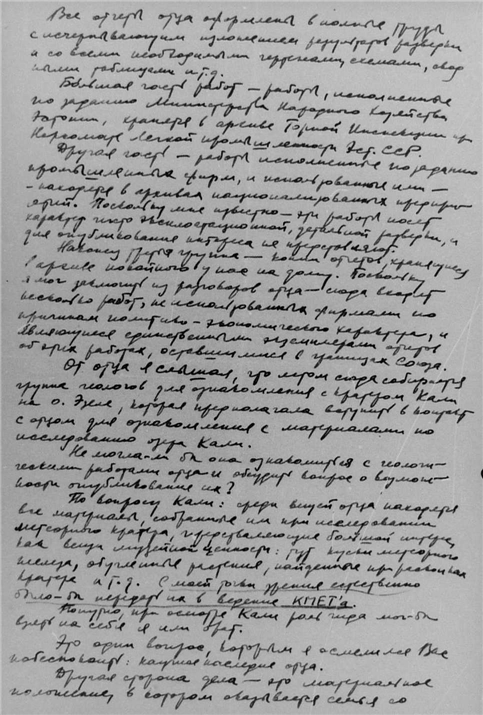 Все отчеты отца оформлены в полные труды
с исчерпывающим изложением результатов разведки
и со всеми необходимыми чертежами, схемами, свод
ными таблицами и т.д.
Большая часть работ — работы, исполненные
по заданию Министерства Народного Хозяйства
Эстонии, хранятся в архиве Горной Инспекции при
Наркомате Легкой промышленности Эст. ССР.
Другая часть — работы исполненные по заданию
промышленных фирм, и использованные ими —
находятся в архивах национализированных предпри-
ятий. Поскольку мне известно — эти работы носят
характер чисто эксплоатационной, детальной разведки, и
для опубликования интереса не представляют.
Наконец третья группа — копии отчетов, хранящиеся
в архиве покойного у нас на дому. Поскольку
я мог заключить из разговоров отца — сюда входят
несколько работ, не использованных фирмами по
причинам политико-экономического характера, и
являющиеся единственными экземплярами отчетов
об этих работах, оставшимися в границах Союза.
От отца я слышал, что летом сюда собирается
группа геологов для ознакомления с кратером Кали
на о. Эзеле, которая предполагала вступить в контакт
с отцом для ознакомления с материалами по
исследованию озера Кали.
Не могла-ли бы она ознакомиться с геологи-
ческими работами отца и обсудить вопрос о возмож-
ности опубликования их?
По вопросу Кали: среди вещей отца находятся
все материалы, собранные им при исследовании
метеорного кратера, представляющие большой интерес,
как вещи музейной ценности: тут куски метеорного
железа, обугленные растения, найденные при раскопках
кратера и т.д. С моей точки зрения естественно
было-бы передать их в ведение КМЕТ'а.
Попутно, при осмотре Кали роль гида мог-бы
взять на себя я или брат.
Это один вопрос, которым я осмелился Вас
побеспокоить: научное наследие отца.
Другая сторона дела — это материальное
положение, в котором оказывается семья со